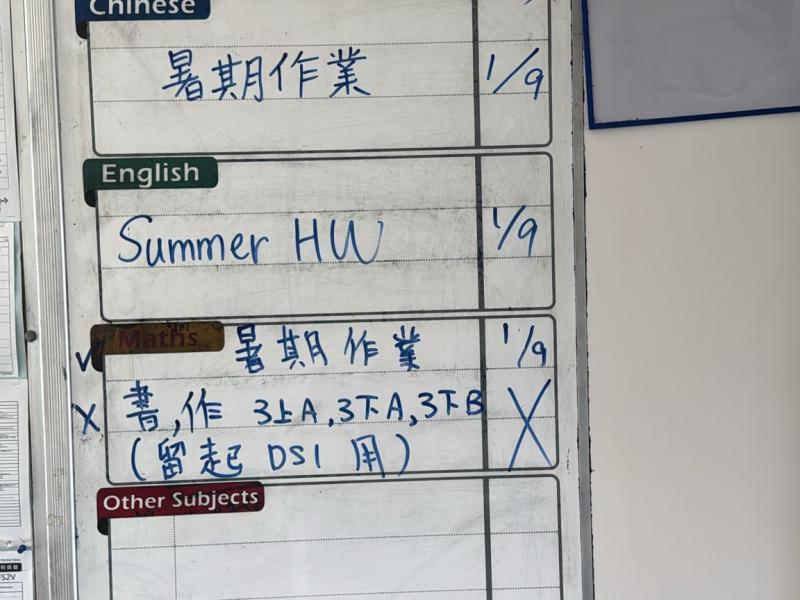 Chinese
暑期作業 1/9
English
Summer HW 1/9
Maths 暑期作業 1/9
✓
X 書,作 3上A,3下A,3下B X
(留起 DS1 用)
Other Subjects
FS2V